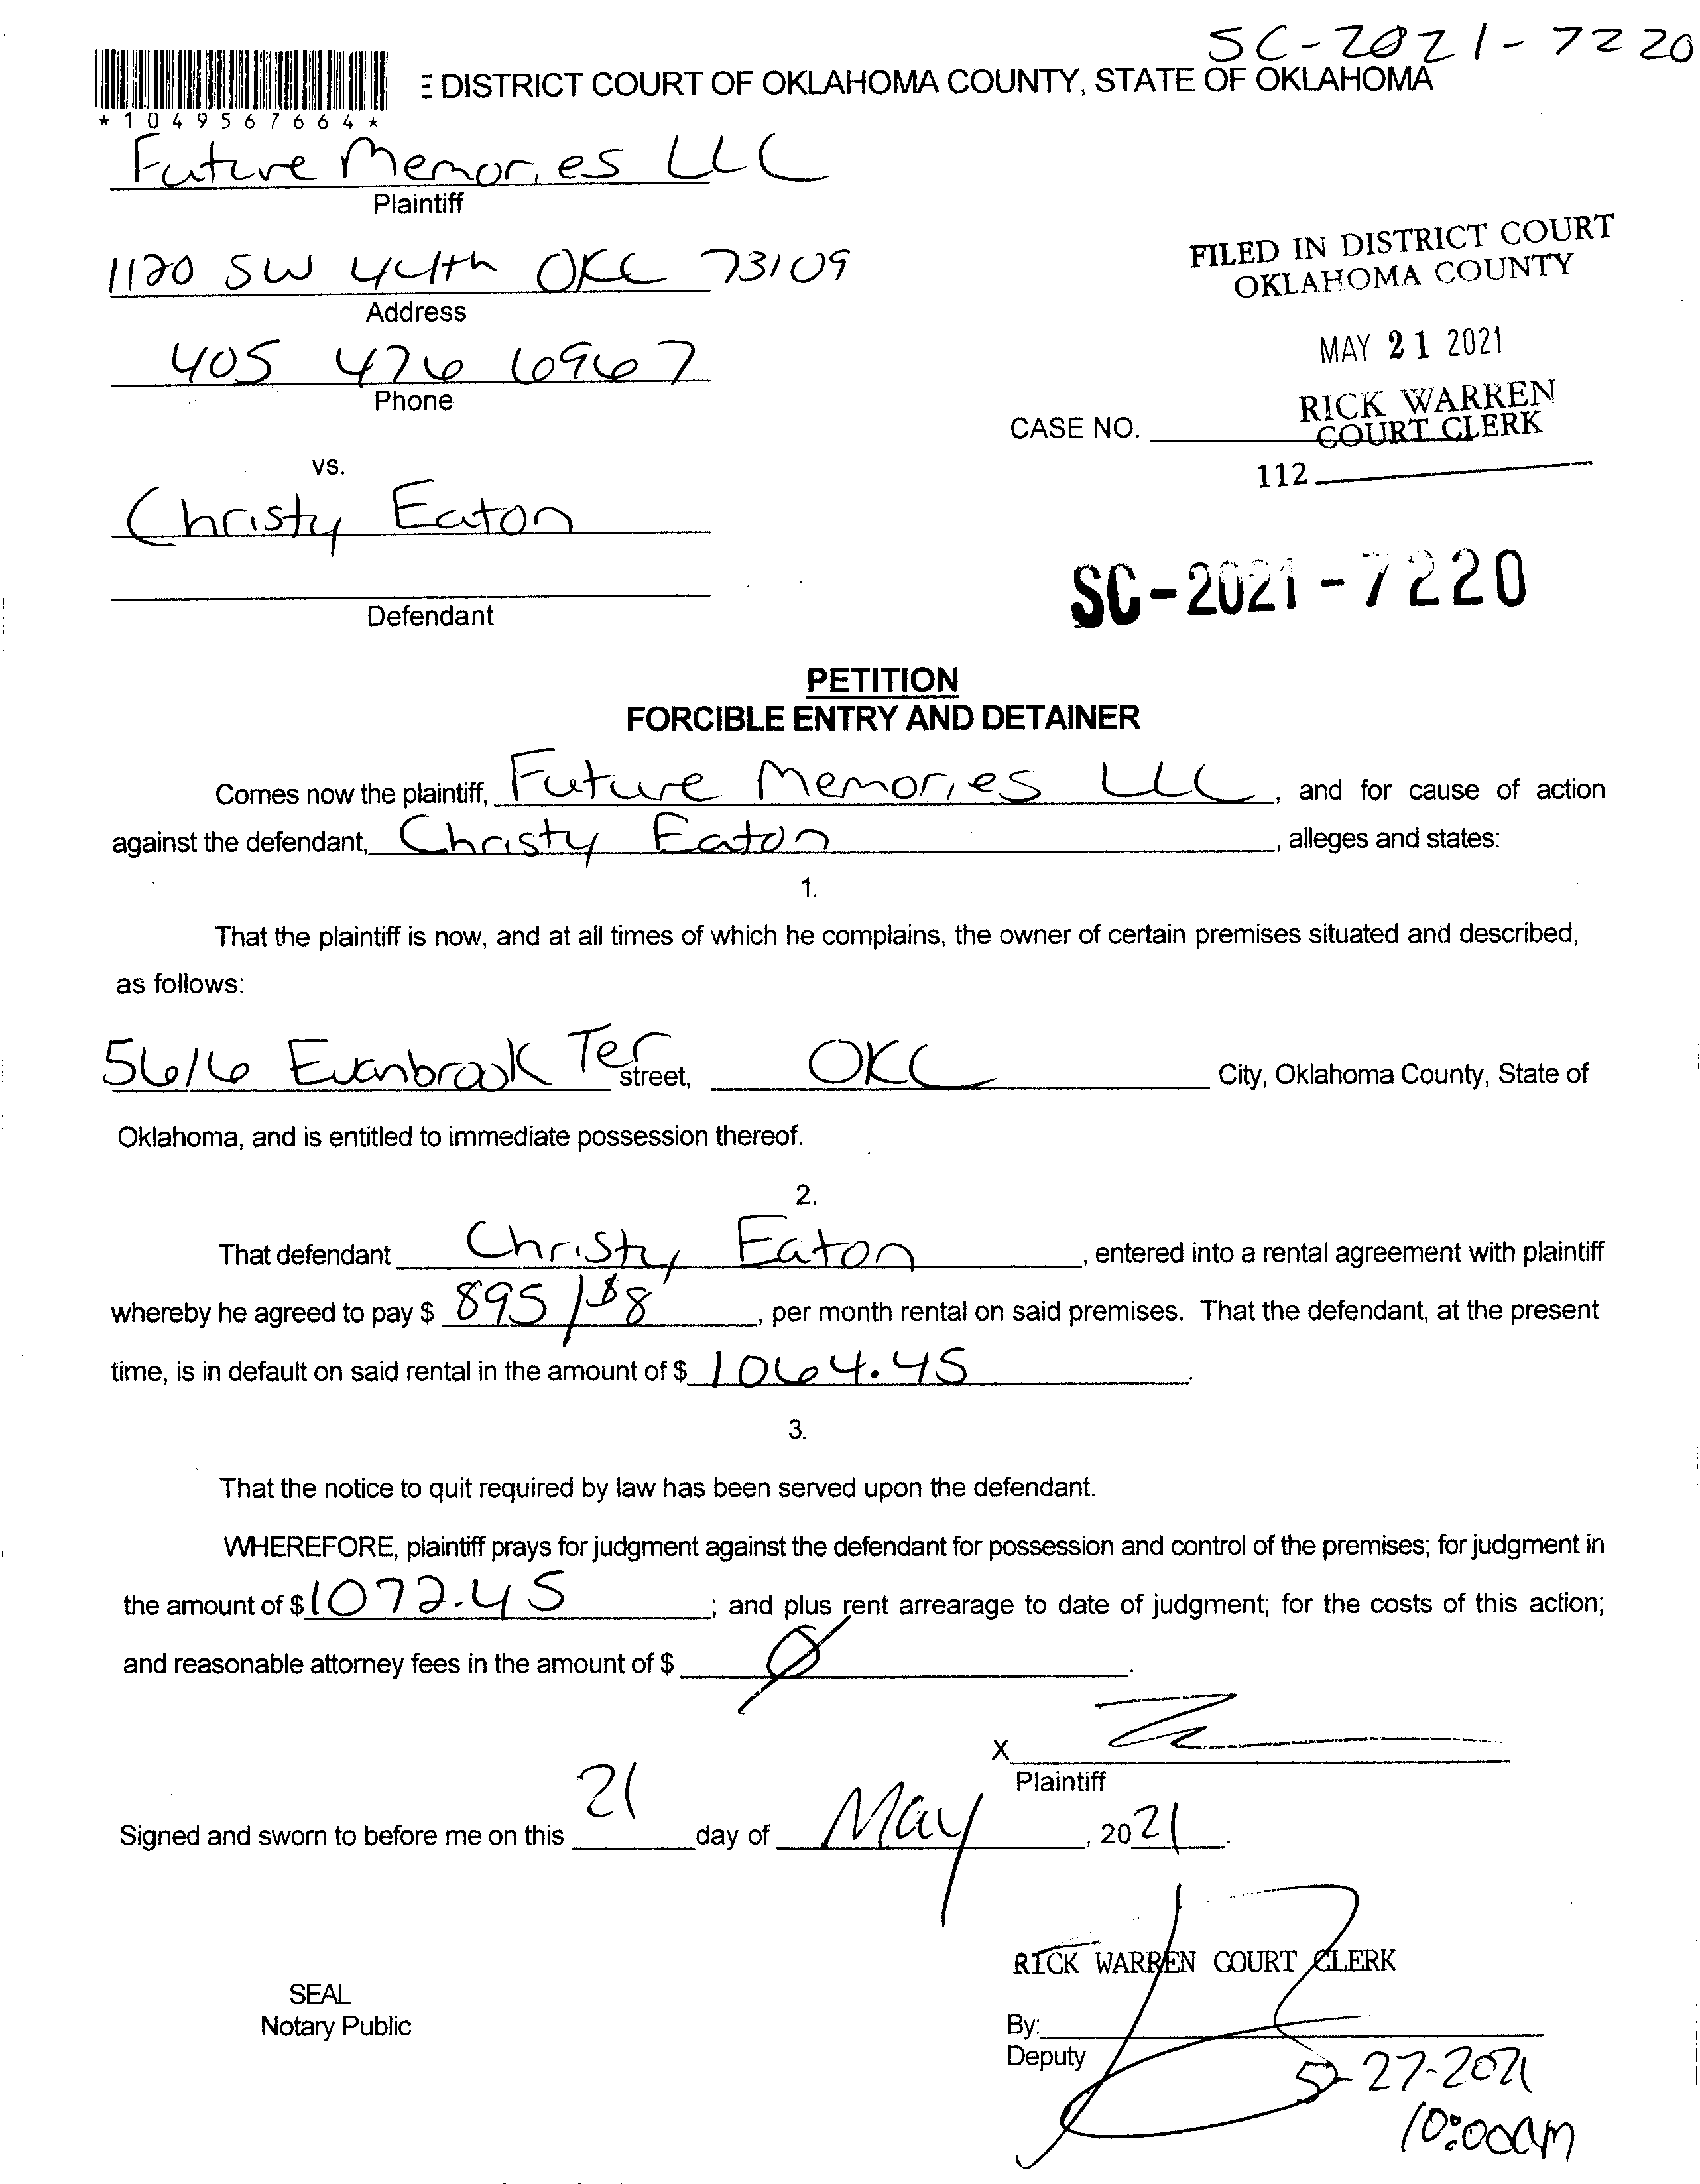 SC-2021-7220
E DISTRICT COURT OF OKLAHOMA COUNTY, STATE OF OKLAHOMA
*1049567664*
Future Memories LLC
Plaintiff
1120 SW 44th OKC 73109
Address
FILED IN DISTRICT COURT
OKLAHOMA COUNTY
MAY 21 2021
405 476 6967
Phone
RICK WARREN
COURT CLERK
CASE NO.
112
vs.
Christy Eaton
Defendant
SC-2021-7220
PETITION
FORCIBLE ENTRY AND DETAINER
Comes now the plaintiff, Future Memories LLC, and for cause of action
against the defendant, Christy Eaton, alleges and states:
1.
That the plaintiff is now, and at all times of which he complains, the owner of certain premises situated and described,
as follows:
5616 Evanbrook Ter street, OKC City, Oklahoma County, State of
Oklahoma, and is entitled to immediate possession thereof.
2.
That defendant Christy Eaton, entered into a rental agreement with plaintiff
whereby he agreed to pay $ 895/$8, per month rental on said premises. That the defendant, at the present
time, is in default on said rental in the amount of $ 1064.45.
3.
That the notice to quit required by law has been served upon the defendant.
WHEREFORE, plaintiff prays for judgment against the defendant for possession and control of the premises; for judgment in
the amount of $ 1072.45; and plus rent arrearage to date of judgment; for the costs of this action;
and reasonable attorney fees in the amount of $ Ø.
X
Plaintiff
Signed and sworn to before me on this 21 day of May, 2021.
RICK WARREN COURT CLERK
SEAL
Notary Public
By:
Deputy
5-27-2021
10:00am